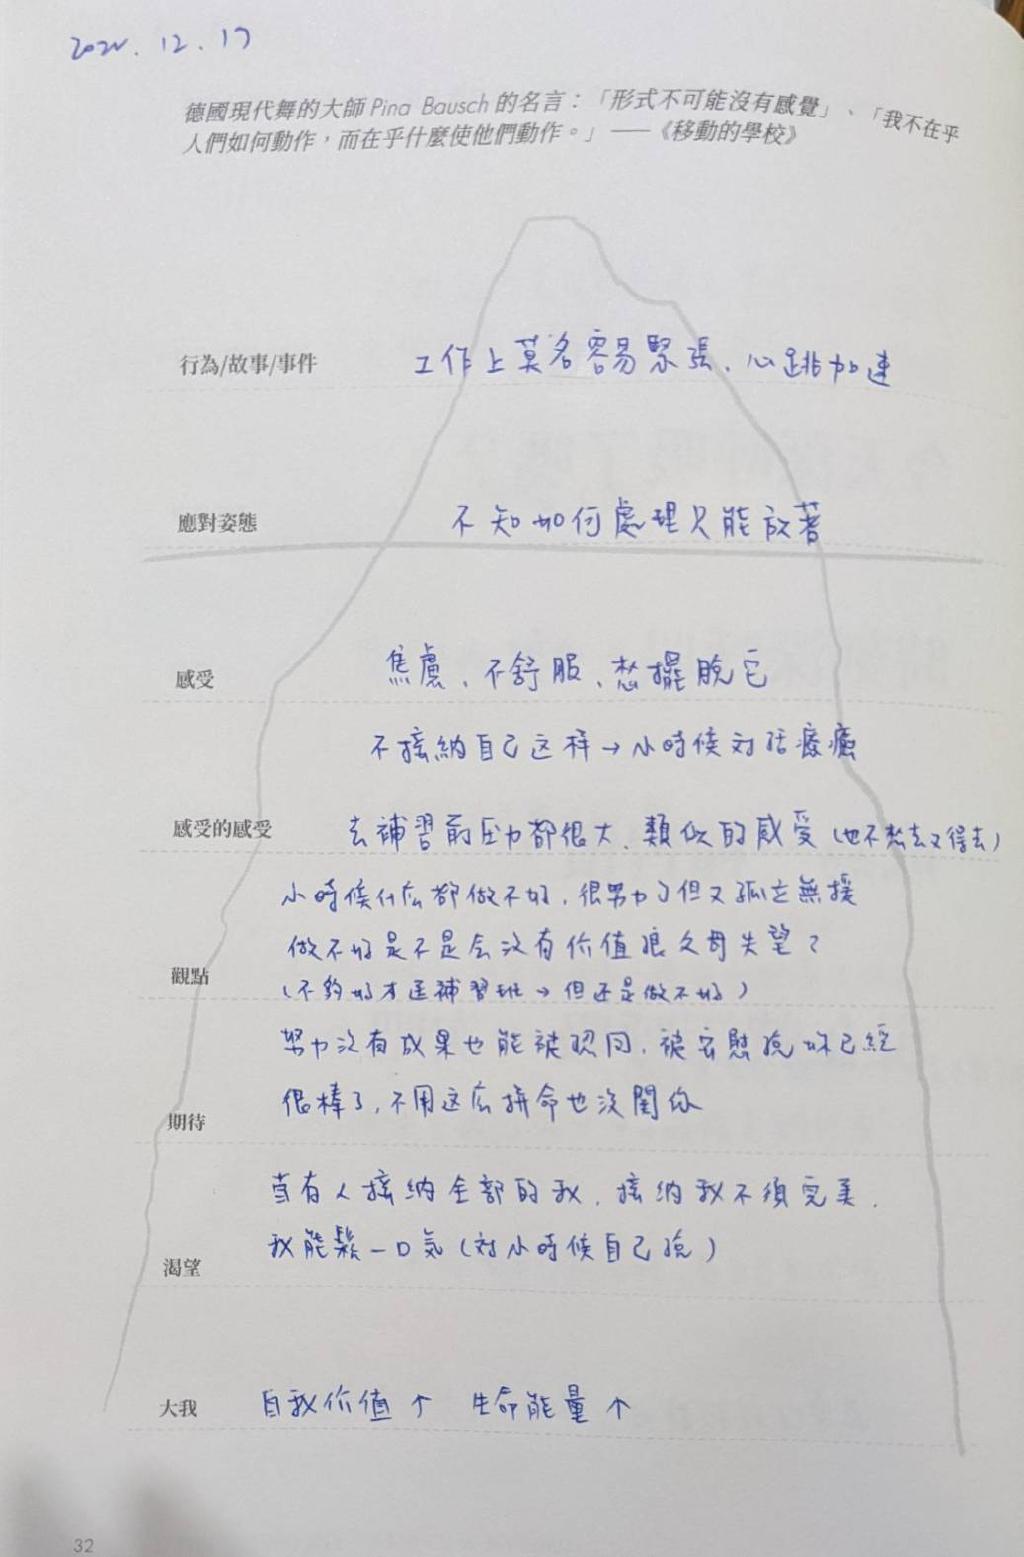 2022. 12. 17
德國現代舞的大師 Pina Bausch 的名言：「形式不可能沒有感覺」、「我不在乎
人們如何動作，而在乎什麼使他們動作。」——《移動的學校》
行為/故事/事件 工作上莫名容易緊張、心跳加速
應對姿態 不知如何處理只能放著
感受 焦慮、不舒服、想擺脫它
不接納自己这样→小時候对话療癒
感受的感受 去補習前压力都很大、類似的感受（也不想去又得去）
小時候什么都做不好，很努力了但又孤立無援
做不好是不是会没有价值跟父母失望？
觀點 （不夠好才送補習班→但还是做不好）
努力没有成果也能被認同，被安慰說妳已經
期待 很棒了，不用这么拼命也没関係
当有人接納全部的我，接納我不須完美，
渴望 我能鬆一口氣（对小時候自己說）
大我 自我价值↑ 生命能量↑
32